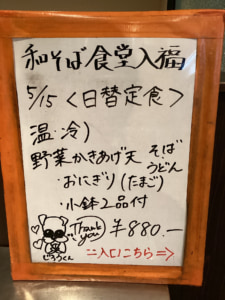 和そば食堂入福
5/15〈日替定食〉
温・冷)
野菜かきあげ天 そば
うどん
・おにぎり(たまご)
・小鉢2品付
Thank you ¥880.-
じろうくん
入口こちら⇒